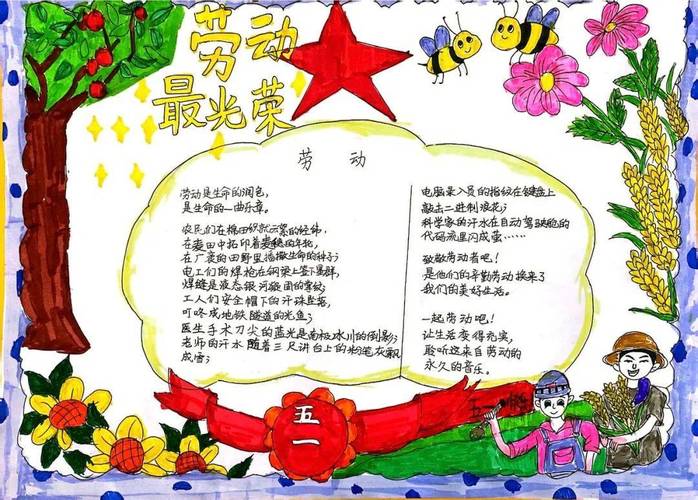 劳动
最光荣
劳 动
劳动是生命的润色，
是生命的一曲乐章。
农民们在棉田织就云絮的经纬，
在麦田中拓印着麦穗的年轮，
在广麦的田野里播撒生命的种子；
电工们的焊枪在钢架上签下黑群，
焊缝是液态银河凝固的掌纹；
工人们安全帽下的汗珠坠落，
叮咚成地铁隧道的光鱼；
医生手术刀尖的蓝光是南极冰川的倒影；
老师的汗水随着三尺讲台上的粉笔灰飘
成雪；
电脑录入员的指纹在键盘上
敲击二进制浪花；
科学家的汗水在自动驾驶舱的
代码流里闪成萤……
致敬劳动者吧！
是他们的辛勤劳动换来了
我们的美好生活。
一起劳动吧！
让生活变得充实，
聆听这来自劳动的
永久的音乐。
五
一